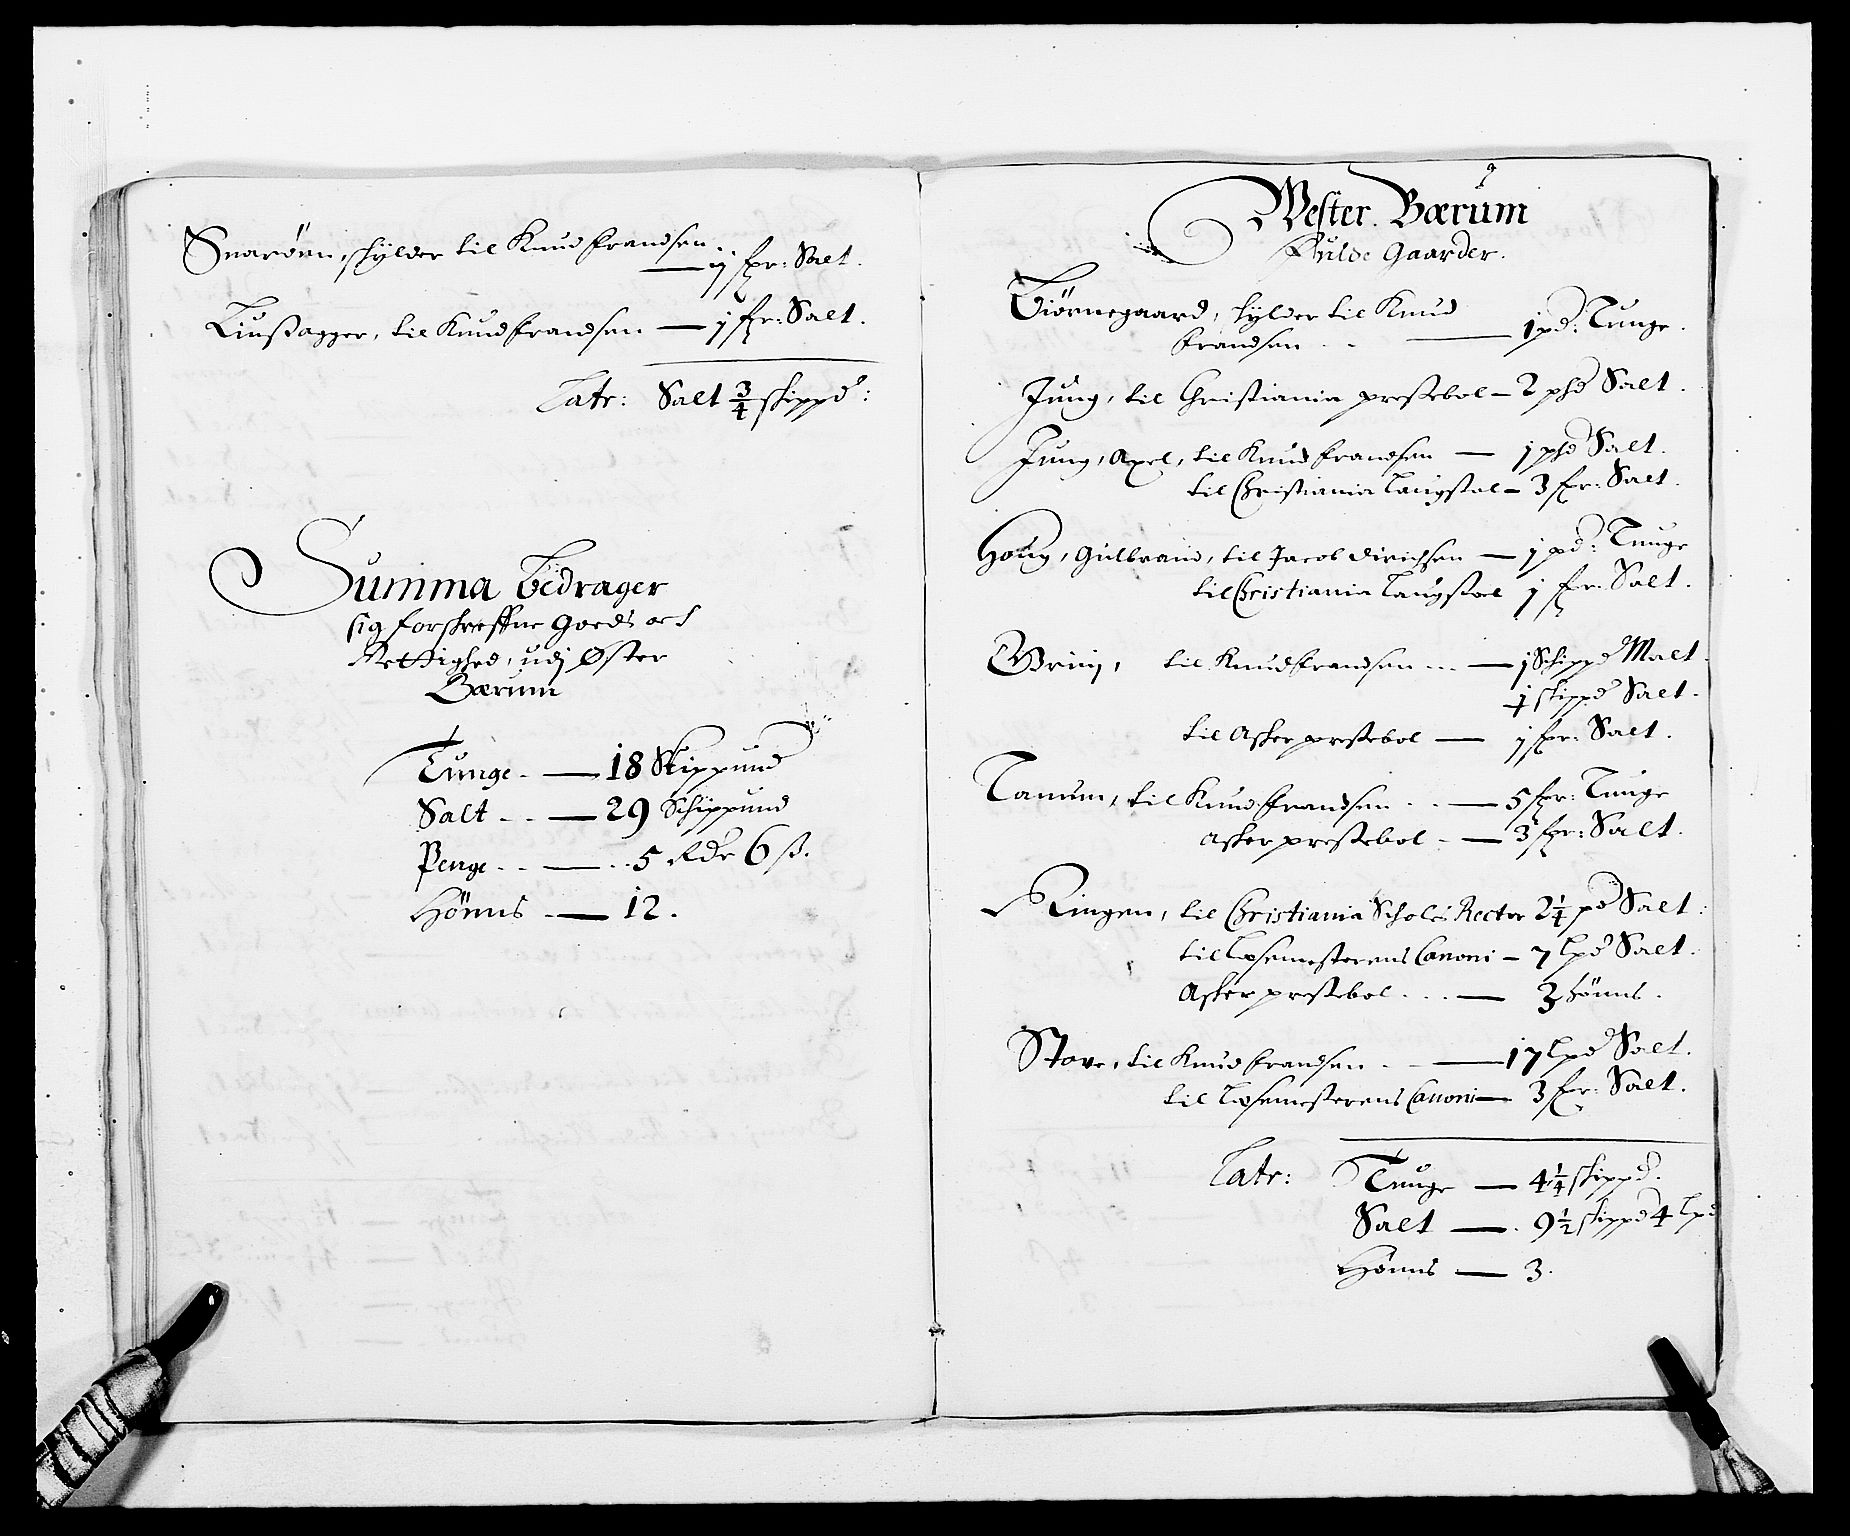 Snarøen, skylder til Knud frandsen
— ij fr: Salt.
Liusagger, til Knud frandsen — j fr: Salt.
Latr: Salt 3/4 skippd:
Summa Bedrager
sig forskreffne Goeds oc
Rettighed, udj Øster
Bærum
Tunge - — 18 Skippund
Salt - - — 29 Schippund
Penge - - — . . 5 Rdr 6 ß.
Hønns - — 12.
9
Wester Bærum
Fulde Gaarder.
Biørnegaard, skylder til Knud
frandsen . . — 1 pd: Tunge.
Jung, til Christiania prestebol — 2 phd Salt.
Jung, Axel, til Knud frandsen — j phd Salt.
til Christiania Laugstol — 3 fr: Salt.
Houg, Gulbrand, til Jacob Dirichsen — j pd: Tunge
til Christiania Laugstoel j fr: Salt.
Grinj, til Knud frandsen — j Schippd Malt.
j skippd Salt.
til Asker prestebol — j fr: Salt.
Tanum, til Knud frandsen . . — 5 fr: Tunge
Asker prestebol - — 3 fr: Salt.
Ringen, til Christiania Scholes Rector 2 1/4 pd Salt:
til Læsemesterens Canoni — 7 lpd Salt.
Asker prestebol . . . — 3 hønns.
Stove, til Knud frandsen . — 17 lpd Salt.
til Læsemesterens Canoni — 3 fr: Salt.
Latr: Tunge — 4 1/4 skippd.
Salt — . 9 1/2 skippd 4 lpd
Hønns — 3.